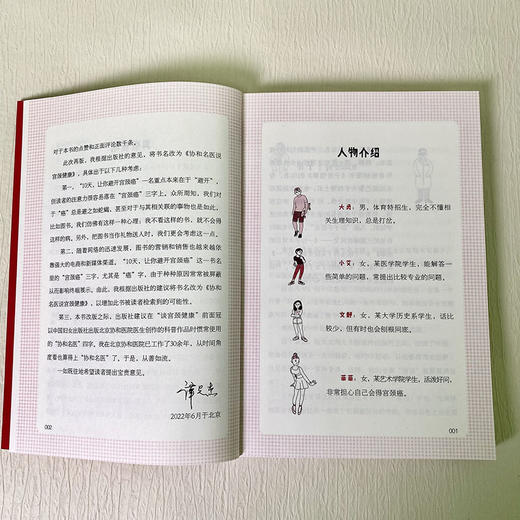 对于本书的点赞和正面评论数千条。
此次再版，我根据出版社的意见，将书名改为《协和名医说
宫颈健康》，具体出于以下几种考虑：
第一，“10天，让你避开宫颈癌”一名重点本来在于“避开”，
但读者的注意力很容易落在“宫颈癌”三字上。众所周知，我们对
于“癌”总是避之如蛇蝎，甚至对于与其相关联的事物也是如此，
比如图书，我们仿佛有这样一种心理：我不看这样的书，就不会得
这样的病。另外，把图书当作礼物送人时，我们更会考虑这一点。
第二，随着网络的迅速发展，图书的营销和销售也越来越依
靠强大的电商和新媒体渠道，“10天，让你避开宫颈癌”这一名称
里的“宫颈癌”三字，尤其是“癌”字，由于种种原因常常被屏蔽
从而影响终端展示。由此，我根据出版社的建议将书名改为《协和
名医谈宫颈健康》，以增加此书被读者检索到的可能性。
第三，本书改版之际，出版社建议在“谈宫颈健康”前面冠
以中国妇女出版社出版北京协和医院医生创作的科普作品时惯常使用
的“协和名医”四字。我在北京协和医院已工作了30余年，从时间角
度看也算得上“协和名医”了。于是，从善如流。
一如既往地希望读者提出宝贵意见。
谭先杰
2022年6月于北京
002
人物介绍
大勇：男，体育特招生，完全不懂相
关生理知识，总是打岔。
小艾：女，某医学院学生，能解答一
些简单的问题，常提出比较专业的问题。
文舒：女，某大学历史系学生，话比
较少，但有时也会刨根问底。
丽丽：女，某艺术学院学生，活泼好问，
非常担心自己会得宫颈癌。
001